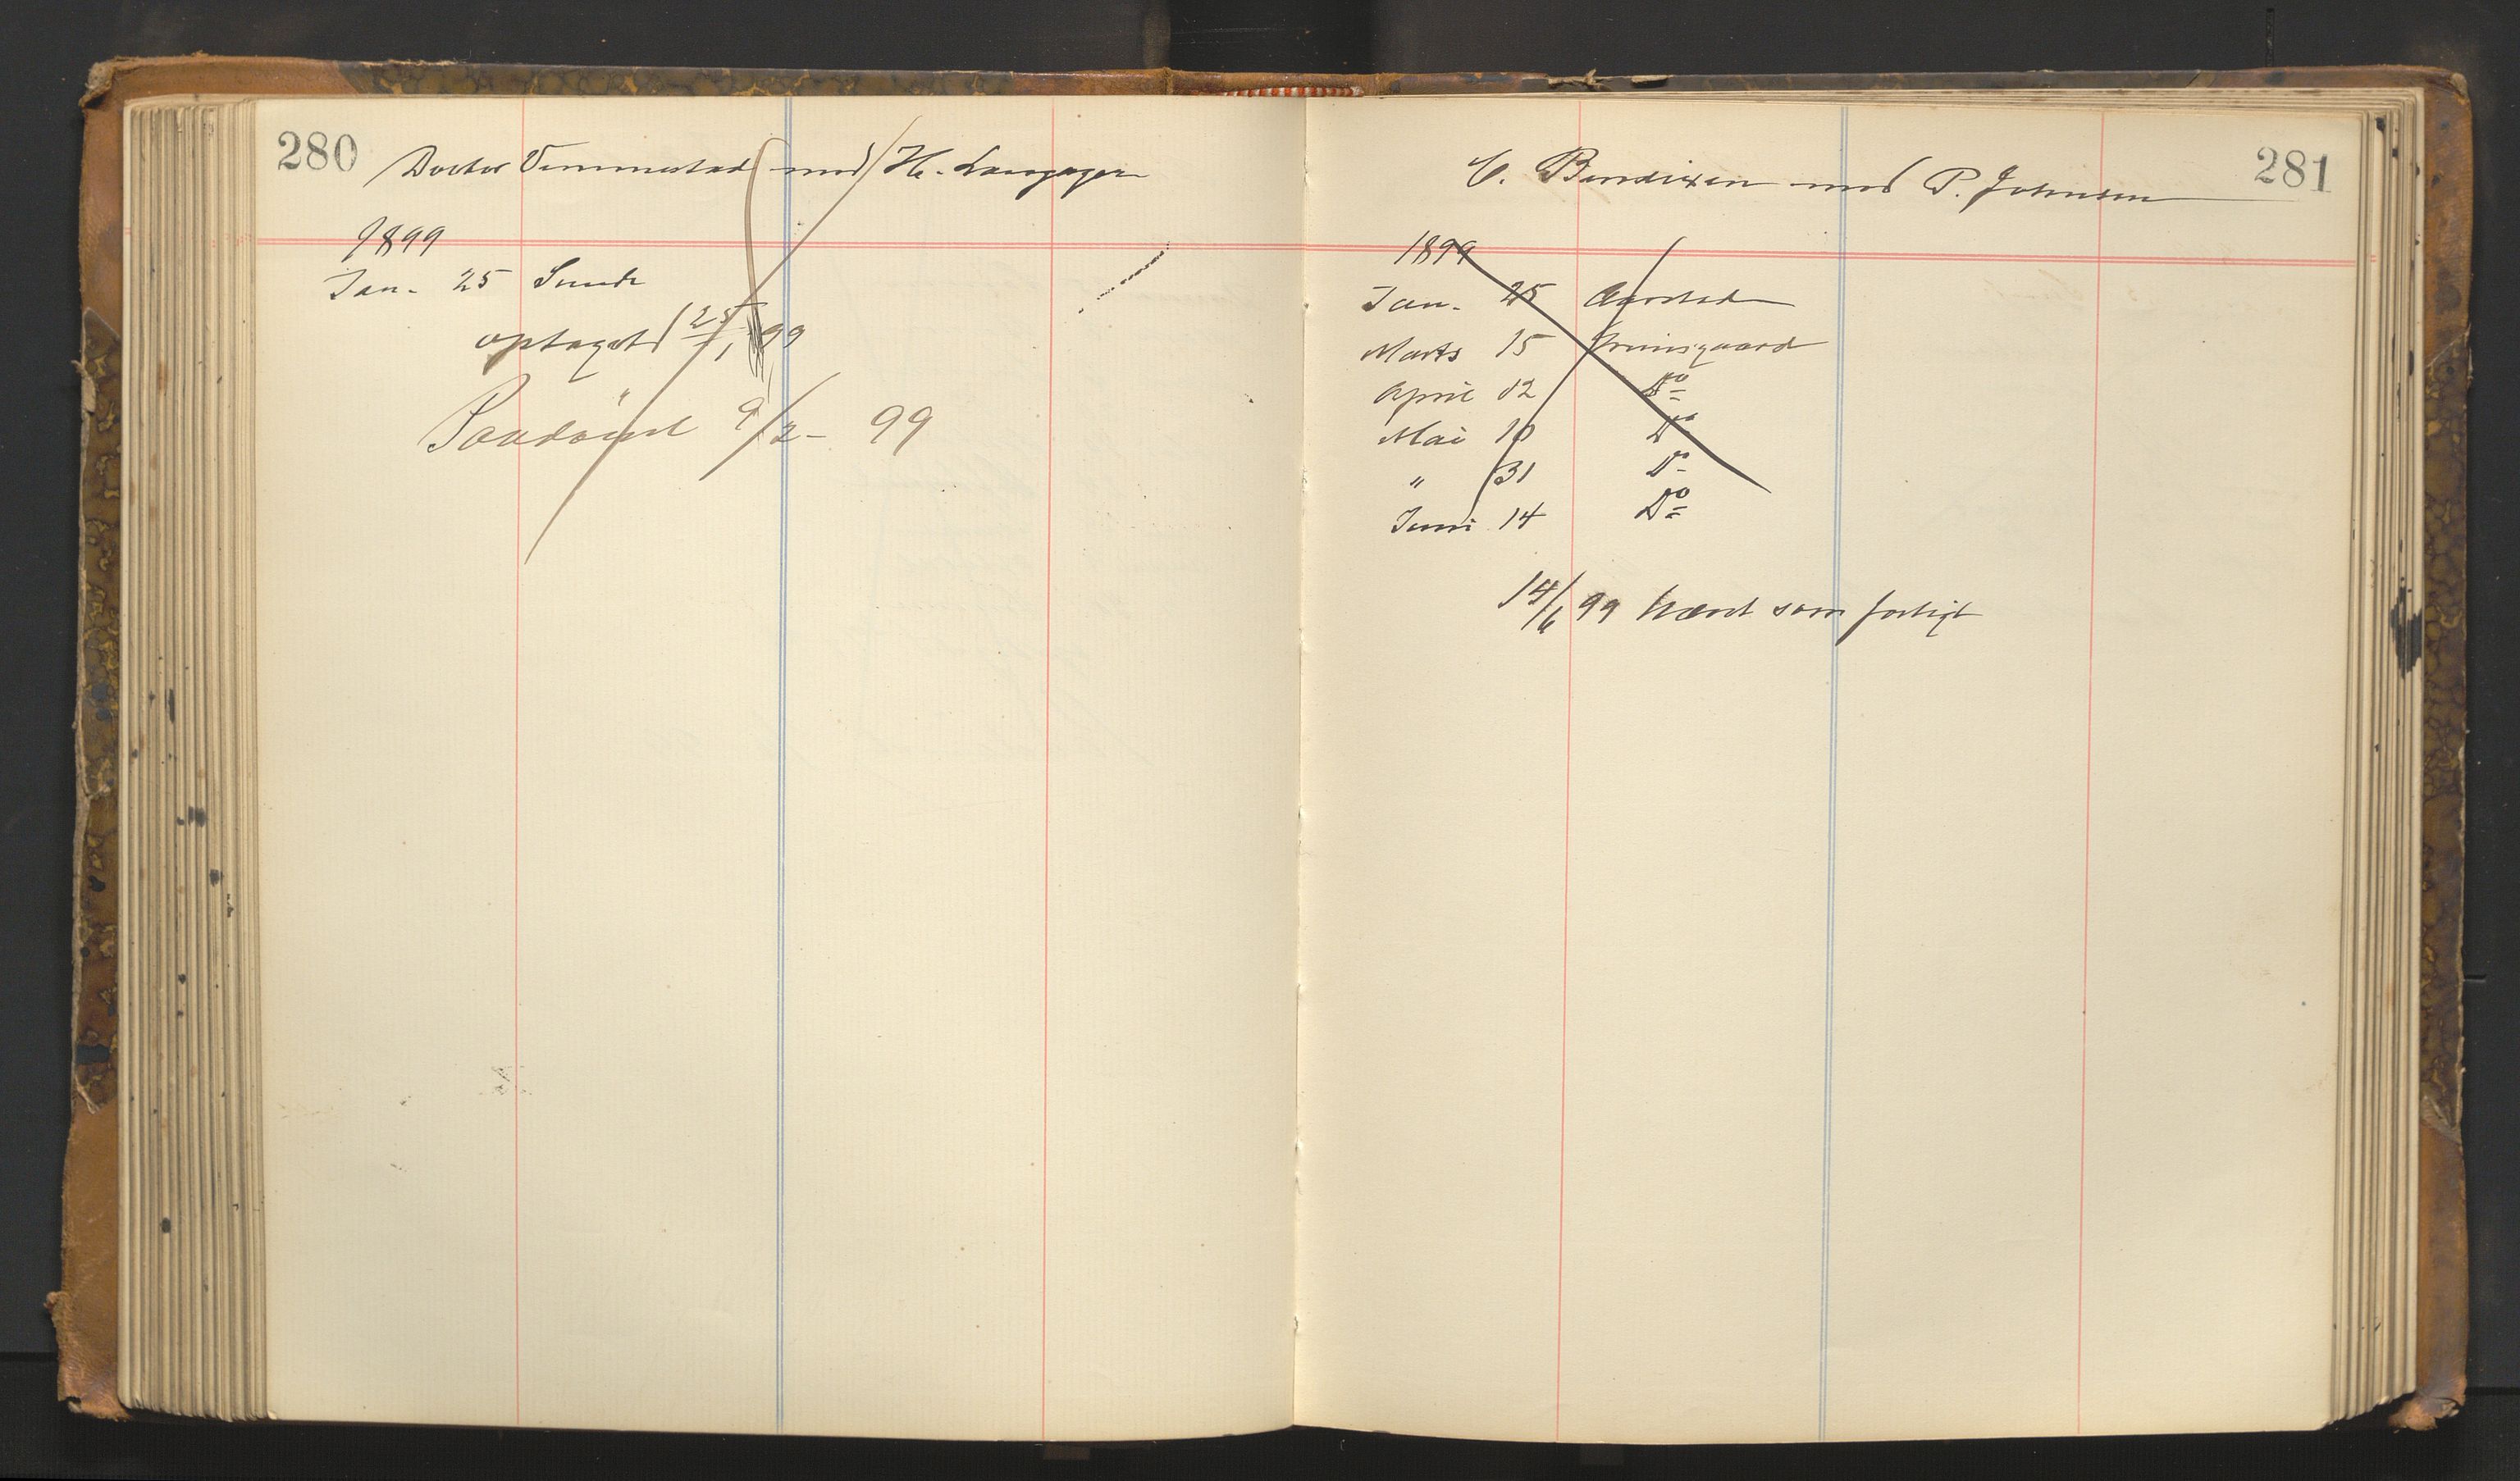 280
Doctor Vemmestad mod H. Langager
1899
Jan. 25 Sunde
optaget 25/1 99
Paadömt 9/2 - 99
281
C. Bendixen mod P. Johnsen
1899
Jan. 25 Aarstad
Marts 15 Grimsgaard
April 12 Do
Mai 10 Do
" 31 Do
Juni 14 Do
14/6 99 hævet som forligt